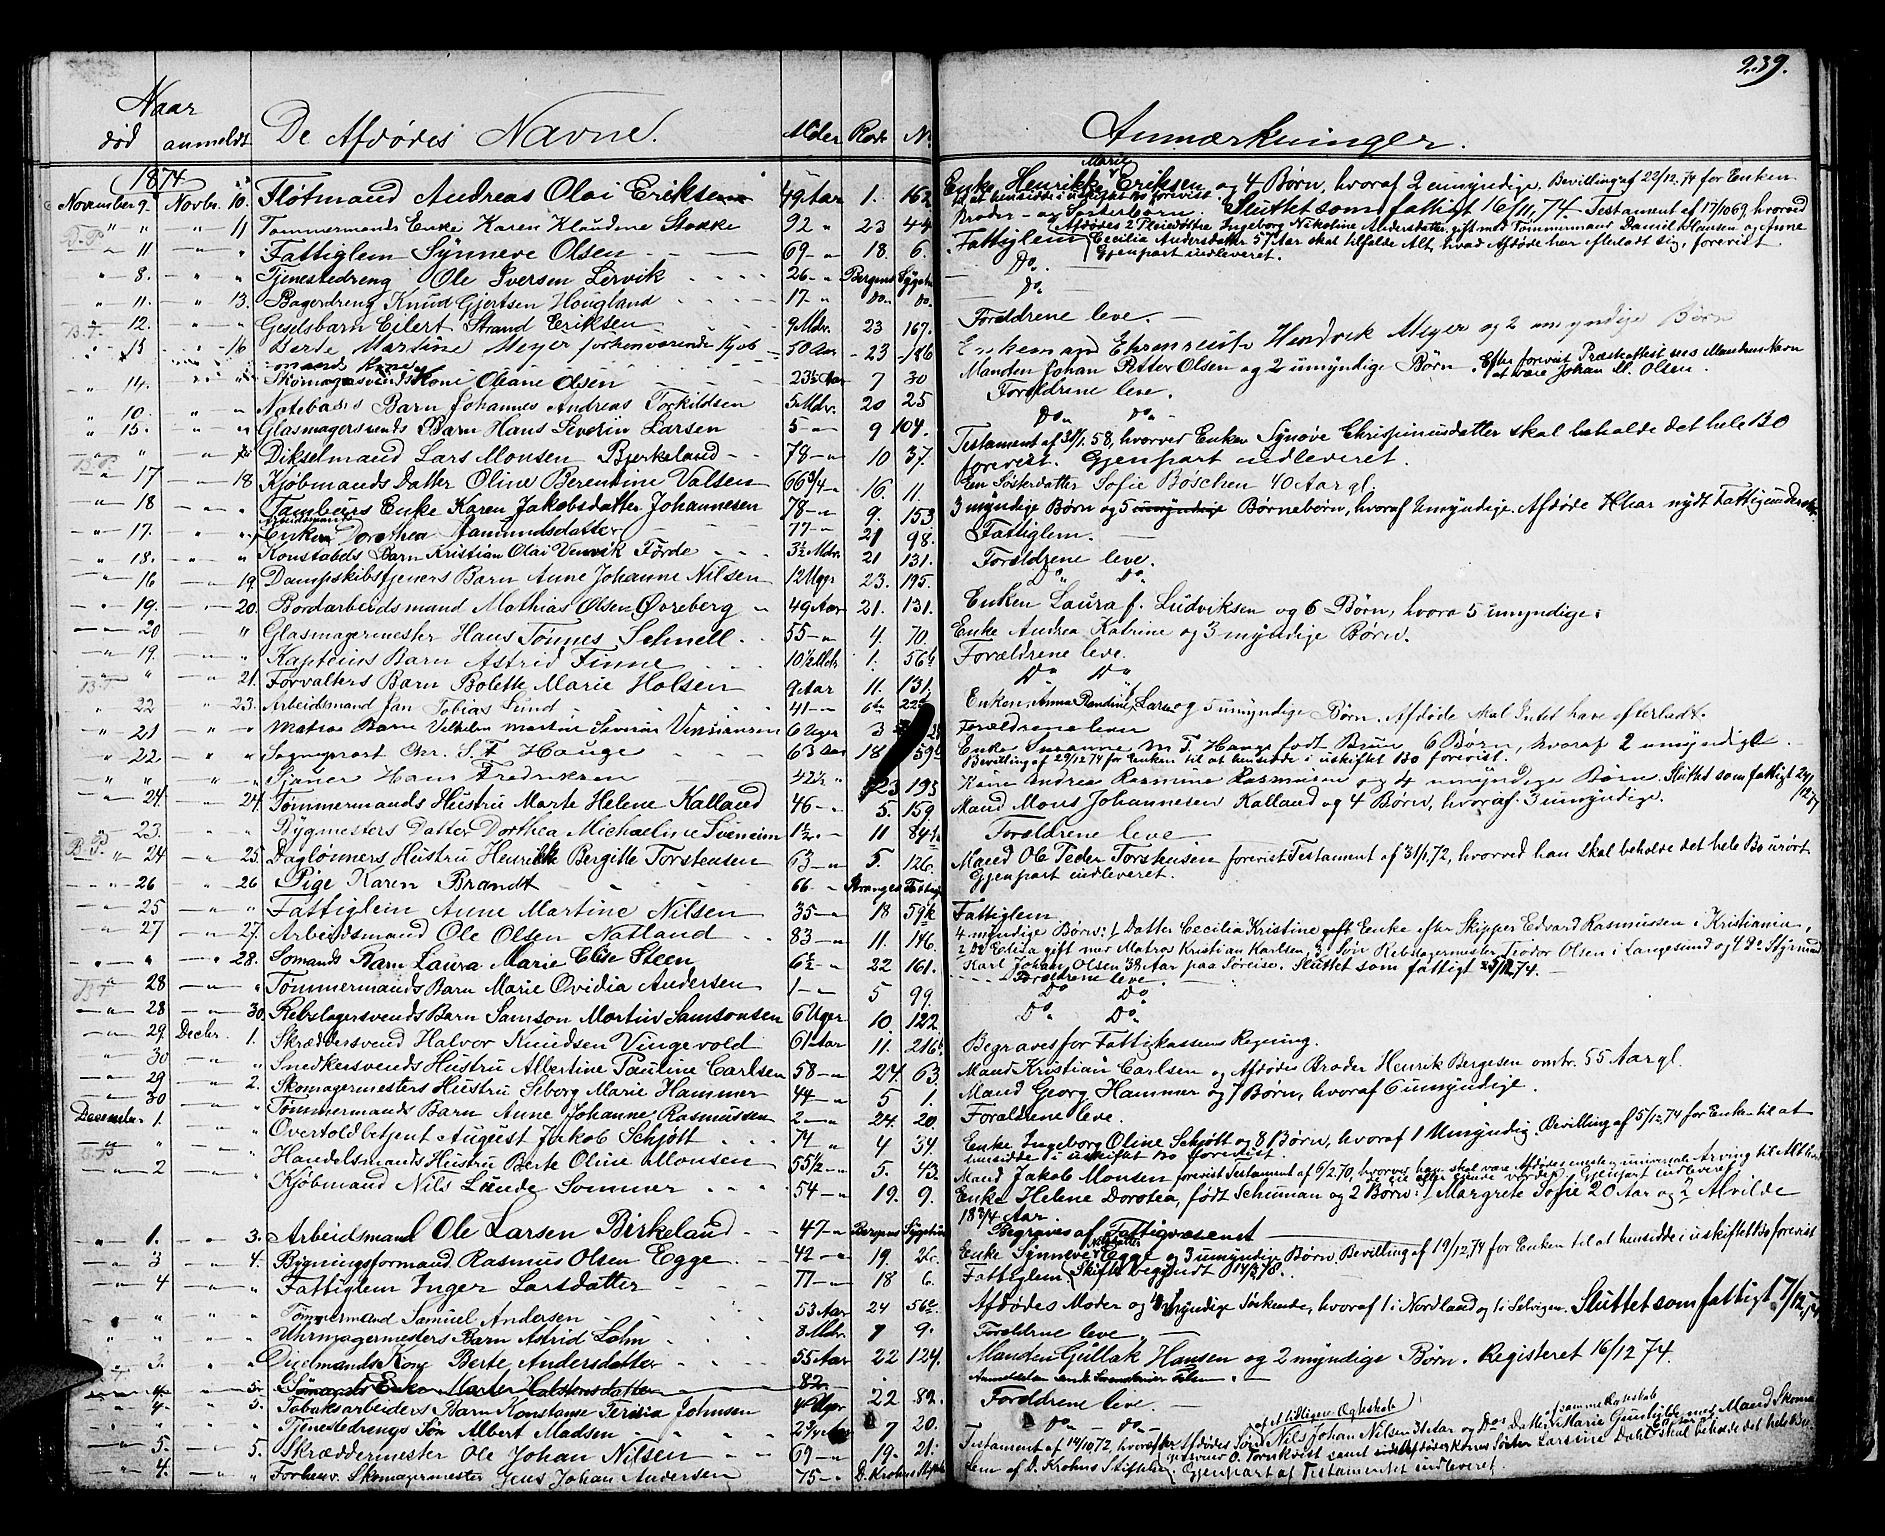 239.
Naar
død anmeldt De Afdødes Navne. Alder Rode No Anmærkninger.
1874
November 9. Novbr. 10. Fløtmand Andreas Olai Eriksen 49 Aar 1. 162 Enke Henrikke Marie Eriksen og 4 Børn, hvoraf 2 umyndige. Bevilling af 22/12 74 for Enken
til at hensidde i uskiftet Bo forevist. Sluttet som fattigt 16/11, 74. Testament af 17/10 69, hvorved
" " 11 Tømmermands Enke Karen Klaudine Staake 92 " 23 44 Broder- og Søsterbørn. Afdødes 2 Pleiedøtre Ingeborg Nikoline Andersdatter gift med Tømmermand Daniel Hansen og Anne
" 11 " Fattiglem Synneve Olsen 69 " 18. 6. Fattiglem Cecilia Andersdatter 57 Aar skal tilfalde Alt, hvad Afdøde har efterladt sig, forevist.
Gjenpart indleveret.
" 8. " Tjenestedreng Ole Iversen Lervik 26 " Bergens Sygehus Do
" 11. " 13. Bagerdreng Knud Gjertsen Hougland 17 " Do Do Do
" 12. " Geselsbarn Eilert Strand Eriksen 9 Mdr. 23 167. Forældrene leve.
" 15 " 16 Berte Martine Meyer forhenværende Kjøb- 50 Aar 23 186 Hendrik Meyer og 2 umyndige Børn
mands Kone
" 14. " Skomagersvends Kone Oliane Olsen 23½ Aar 7 30 Manden Johan Petter Olsen og 2 umyndige Børn Efter forevist Præsteattest Mandens Navn
at være Johan M. Olsen.
" 10. " Notebas's Barn Johannes Andreas Torkildsen 5 Mdr. 20 25 Forældrene leve.
" 15. " Glasmagersvends Barn Hans Severin Larsen 5 " 9 104. Do Do
" " 17. Dikselmand Lars Monsen Bjerkeland 78 " 10 37. Testament af 31/1. 58, hvorved Enken Synøve Chrispinusdatter skal beholde det hele Bo
forevist. Gjenpart indleveret.
" 17 " 18 Kjøbmands Datter Oline Berentine Valsen 66 3/4 " 16. 11. En Søsterdatter Sofie Bøschen 40 Aar gl.
" 18 " Tamburs Enke Karen Jakobsdatter Johannesen 78 " 9. 153 3 myndige Børn og 5 umyndige Børnebørn, hvoraf 2 umyndige. Afdøde har nydt Fattigunderst.
" 17. " Arbeidsmands Enken Dorothea Aamundsdatter 77 " 21 98. Fattiglem.
" 18. " Konstabels Barn Kristian Olai Vennik Førde 3½ Mdr. 21 131. Forældrene leve.
" 16 " 19. Dampskibsfjeners Barn Anne Johanne Nilsen 12 Uger 23. 195. Do Do
" 19. " 20. Bordarbeidsmand Mathias Olsen Øvreberg 49 Aar 21. 131. Enken Laura f. Ludviksen og 6 Børn, hvoraf 5 umyndige.
" 20 " Glasmagermester Hans Tønnes Schnell 55 " 4. 70. Enke Andrea Katrine og 3 myndige Børn.
" 19. " Kapteins Barn Astrid Finne 10½ Mdr 1. 56b Forældrene leve.
" " 21. Forvalters Barn Bolette Marie Holsen 9 Aar 11. 131. Do Do
" 22 " 23. Arbeidsmand Jan Tobias Lund 41 " 6te 22 Enken Anna Larsen og 5 umyndige Børn. Afdøde skal Intet have efterladt.
" 21 " Matros Barn Vilhelm Martin Vinsiansen 6 Uger 3 Forældrene leve
" 22 " Sogneprest Chr. S. F. Hauge 63 Aar 18 59b Enke Susanne M. F. Hauge født Brun, 6 Børn, hvoraf 2 umyndige
Bevilling af 29/12 74 for Enken til at hensidde i uskiftet Bo forevist.
" " " Stjuer Hans Fredriksen 42½ " 23 193 Kone Andrea Rasmine Rasmussen og 4 umyndige Børn. Sluttet som fattigt 24/12 74
" 24 " 24. Tømmermands Hustru Marte Helene Kalland 46 " 5. 159. Mand Mons Johannesen Kalland og 4 Børn, hvoraf 3 umyndige.
" 23. " Bygmesters Datter Dorthea Michaeline Sveneim 1½ " 11 84½ Forældrene leve
" 24 " 25. Dagløners Hustru Henrikke Bergitte Torstensen 63 " 5. 126. Mand Ole Peder Torstensen forevist Testament af 31/1 72, hvorved han skal beholde det hele Bo urørt
Gjenpart indleveret.
" 26 " 26 Pige Karen Brandt 66 "
" 25 " Fattiglem Anne Martine Nilsen 35 " 18 59k Fattiglem
" 27 " 27. Arbeidsmand Ole Olsen Natland 83 " 11. 146. 4 myndige Børn: 1 Datter Cecilia Kristine gift Enke efter Skipper Edvard Rasmussen i Kristiania,
2 Do Elisa gift med Matros Kristian Karlsen, 3 Søn Rebslagermester Teodor Olsen i Langesund og 1 Do Styrmand
" " 28. Sømands Barn Laura Marie Elise Steen 6½ " 22 161. Karl Johan Olsen 38 Aar paa Søreise. Sluttet som fattigt 23/12 74.
Forældrene leve.
" 28 " Tømmermands Barn Marie Ovidia Andersen 1 " 5 99. Do Do
" 28 " 30. Rebslagersvends Barn Samson Martin Samsonsen 6 Uger 10. 122 Do Do
" 29. Decbr. 1. Skræddersvend Halvor Knudsen Vingevold 61 Aar 11. 216b Begraves for Fattigkassens Regning.
" 30 " Snedkersvends Hustru Albertine Pauline Carlsen 58 " 24. 63. Mand Kristian Carlsen og Afdødes Broder Henrik Bergesen omtr. 55 Aar gl.
" 29 " 2. Skomagermesters Hustru Seborg Marie Hammer 44 " 5 1. Mand Georg Hammer og 7 Børn, hvoraf 6 umyndige.
" 30 " Tømmermands Barn Anne Johanne Rasmussen 2 " 24. 20. Forældrene leve.
December 1. " Overtoldbetjent August Jakob Schjøtt 74 " 4 34. Enke Ingeborg Oline Schjøtt og 8 Børn, hvoraf 1 Umyndig. Bevilling af 5/12 74 for Enken til at
hensidde i uskiftet Bo forevist.
" " Handelsmands Hustru Berte Oline Monsen 55½ " 5. 43 Mand Jakob Monsen forevist Testament af 6/2 70, hvorved han skal være Afdødes eneste og universale Arving til Alt
" 2 " Kjøbmand Nils Lunde Sommer 54 " 19. 9. Enke Helene Dorotea, født Schuman og 2 Børn: 1 Margrete Sofie 20 Aar og 2 Alvilde
18 3/4 Aar.
" 1. " 3. Arbeidsmand Ole Larsen Birkeland 47 " Bergens Sygehus Begraves af Fattigvæsenet
" 3 " 4. Bygningsformand Rasmus Olsen Egge 42 " 19. 26. Enke Synneve Egge og 3 umyndige Børn. Bevilling af 19/12, 74 for Enken til at hensidde i uskiftet Bo forevist
" 4 " Fattiglem Inger Larsdatter 77 " 18 6. Fattiglem (Skifte begyndt 14/3 78.
" " Tømmermand Samuel Andersen 53 Aar 24 56c. Afdødes Moder og 4 myndige Søskende, hvoraf 1 i Nordland og 1 i Selvigen. Sluttet som fattigt 17/12, 74
" " Uhrmagermesters Barn Astrid Lohn 8 Mdr. 7 9. Forældrene leve
" 3. " Diedmands Kone Berte Andersdatter 55 Aar 22 124. Manden Gullak Hansen og 2 myndige Børn. Registeret 16/12 74.
" 4. " 5. Sømands Enke Marte Halstensdatter 82
" 4. " 5. Tobaksarbeiders Barn Konstanse Terisia Johnsen 4 Uger 22 82. Forældrene leve.
" " Tjenestedrengs Søn Albert Madsen 7 20. Do Do
" 5. " 5. Skræddermester Ole Johan Nilsen 69 " 19. 21. Testament af 14/10 72, hvorefter Afdødes Søn Nils Johan Nilsen 31 Aar og Do Datter Marie med Mand Skomagersvend O. Tornkvist samt Afdødes Kones Søster Larsine Dahl skal beholde det hele Bo.
" 4. " Forhenv. Skomagermester Jens Johan Andersen 75 " D. Krohns Stiftelse Lem af D. Krohns Stiftelse. Gjenpart af Testamentet indleveret.